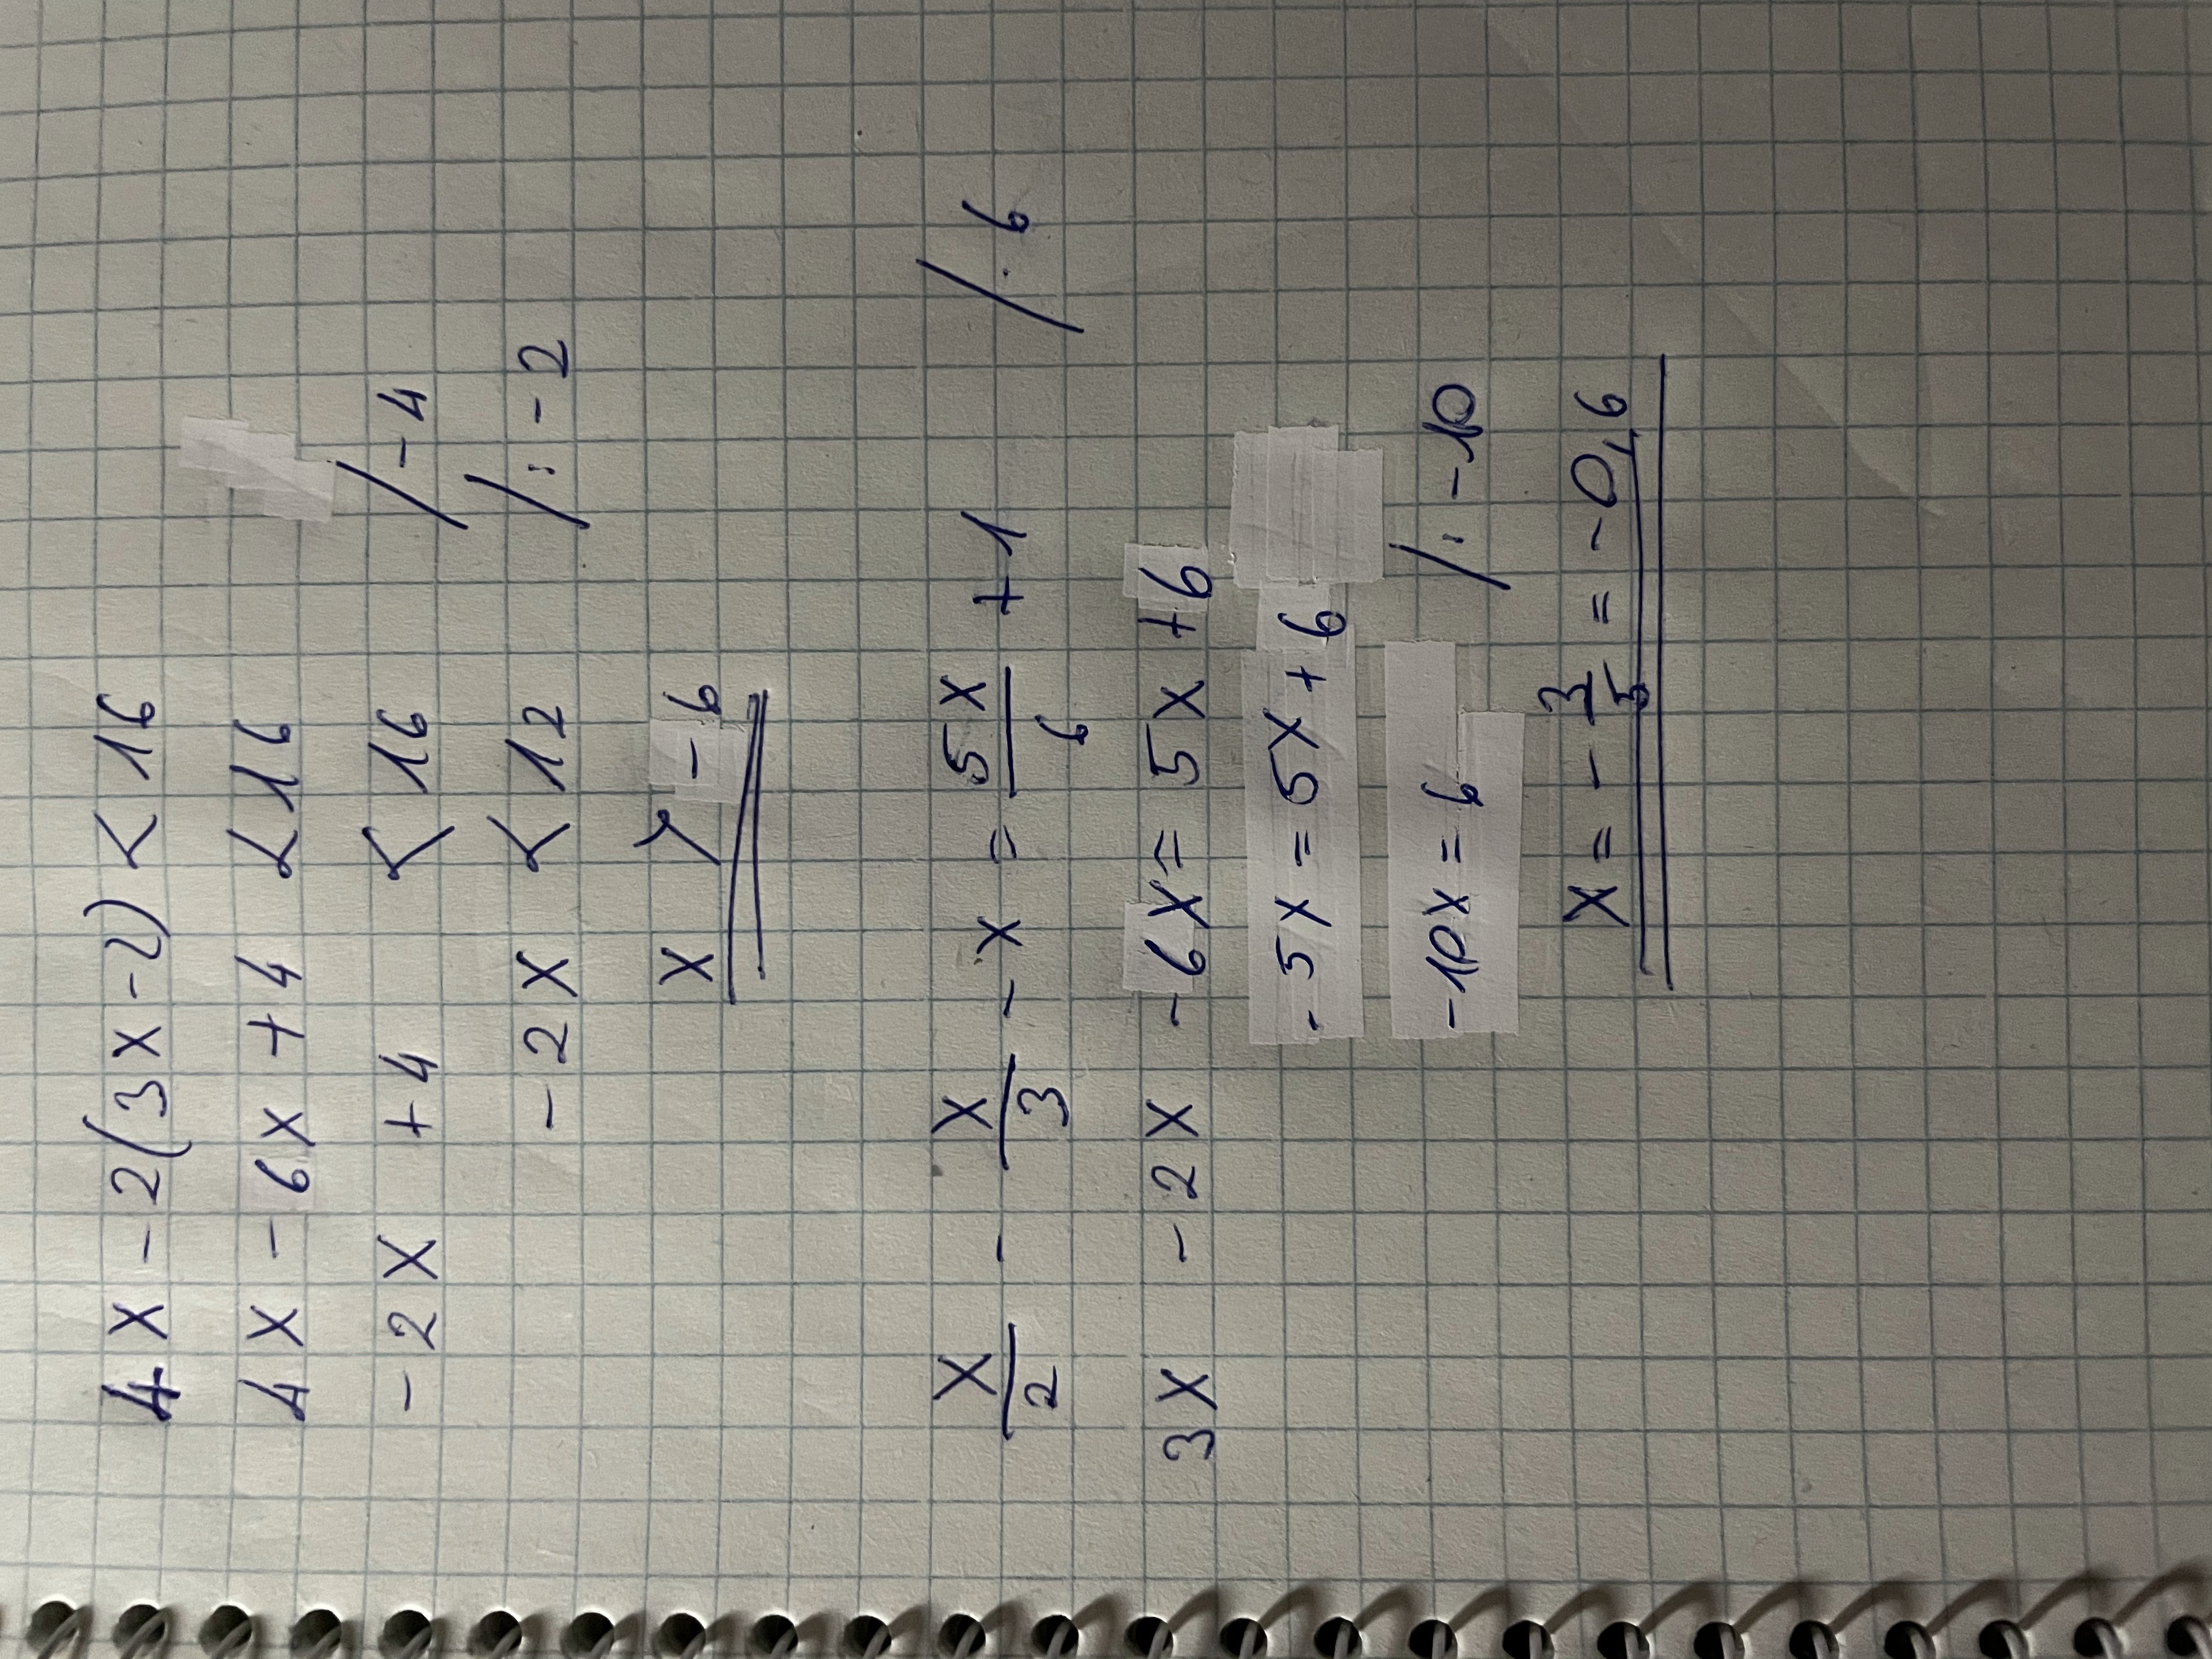 4x - 2(3x - 2) < 16
4x - 6x + 4 < 16
-2x + 4 < 16 / -4
-2x < 12 / : -2
x > -6
x/2 - x/3 - x = 5x/6 + 1 / · 6
3x - 2x - 6x = 5x + 6
-5x = 5x + 6
-10x = 6 / : -10
x = - 3/5 = -0,6